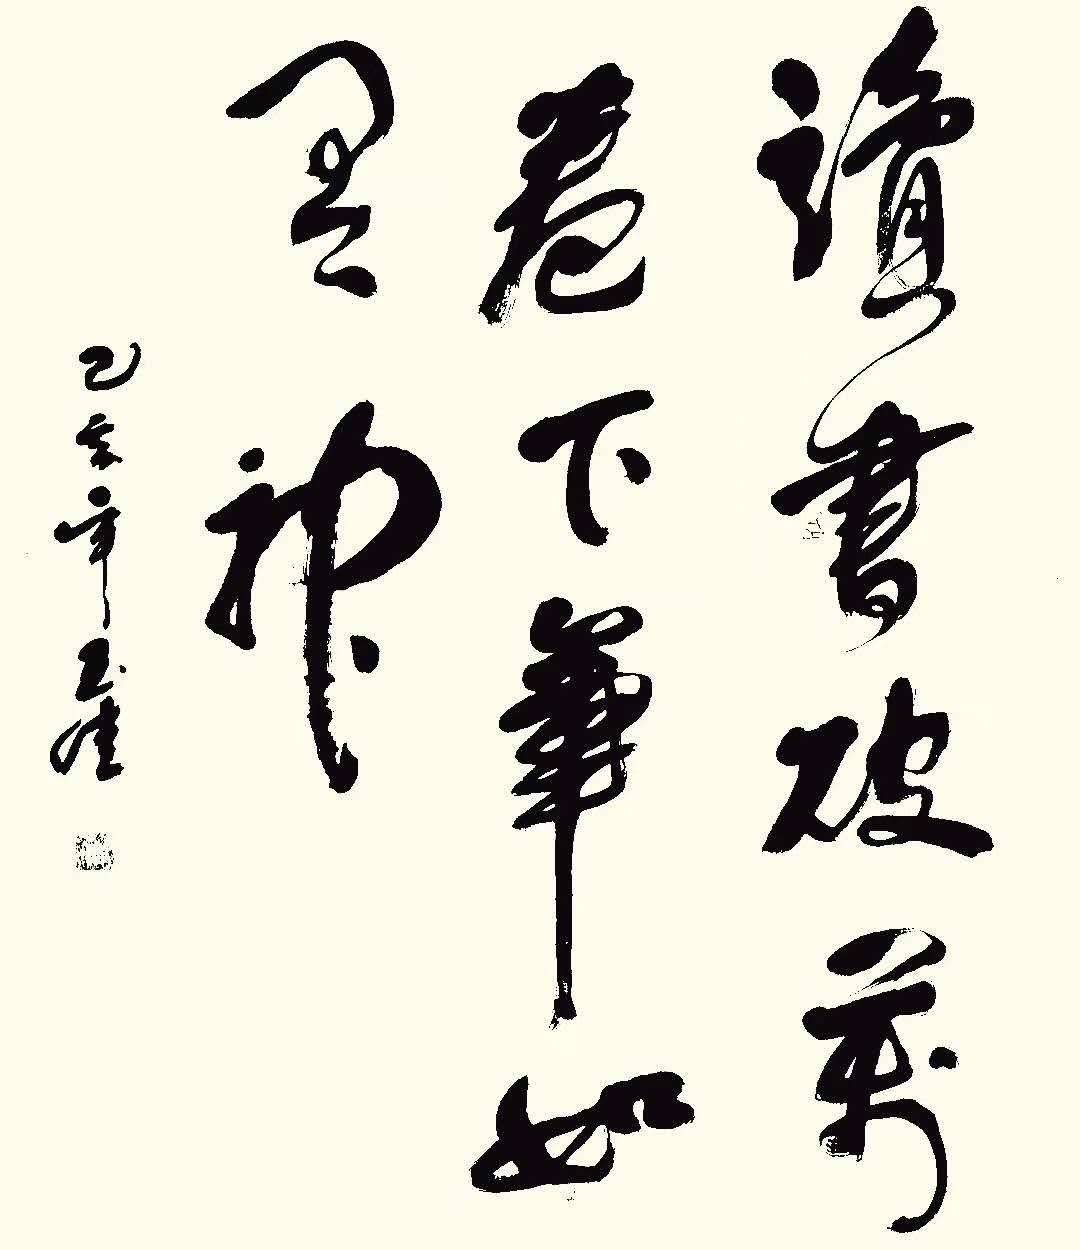 讀書破萬
卷下筆如
有神
己亥年玉